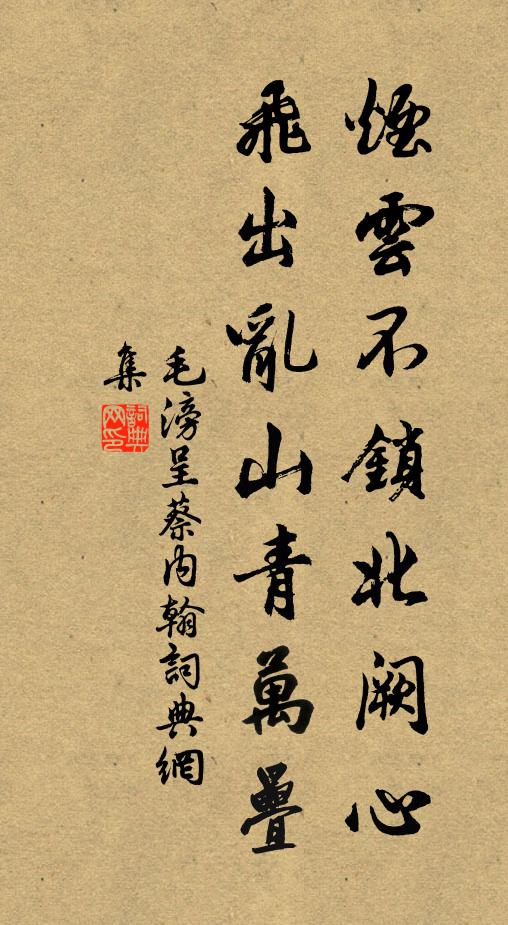 煙雲不鎖北闕心
飛出亂山青萬疊
毛滂呈蔡內翰詞典網
集
詞典网印